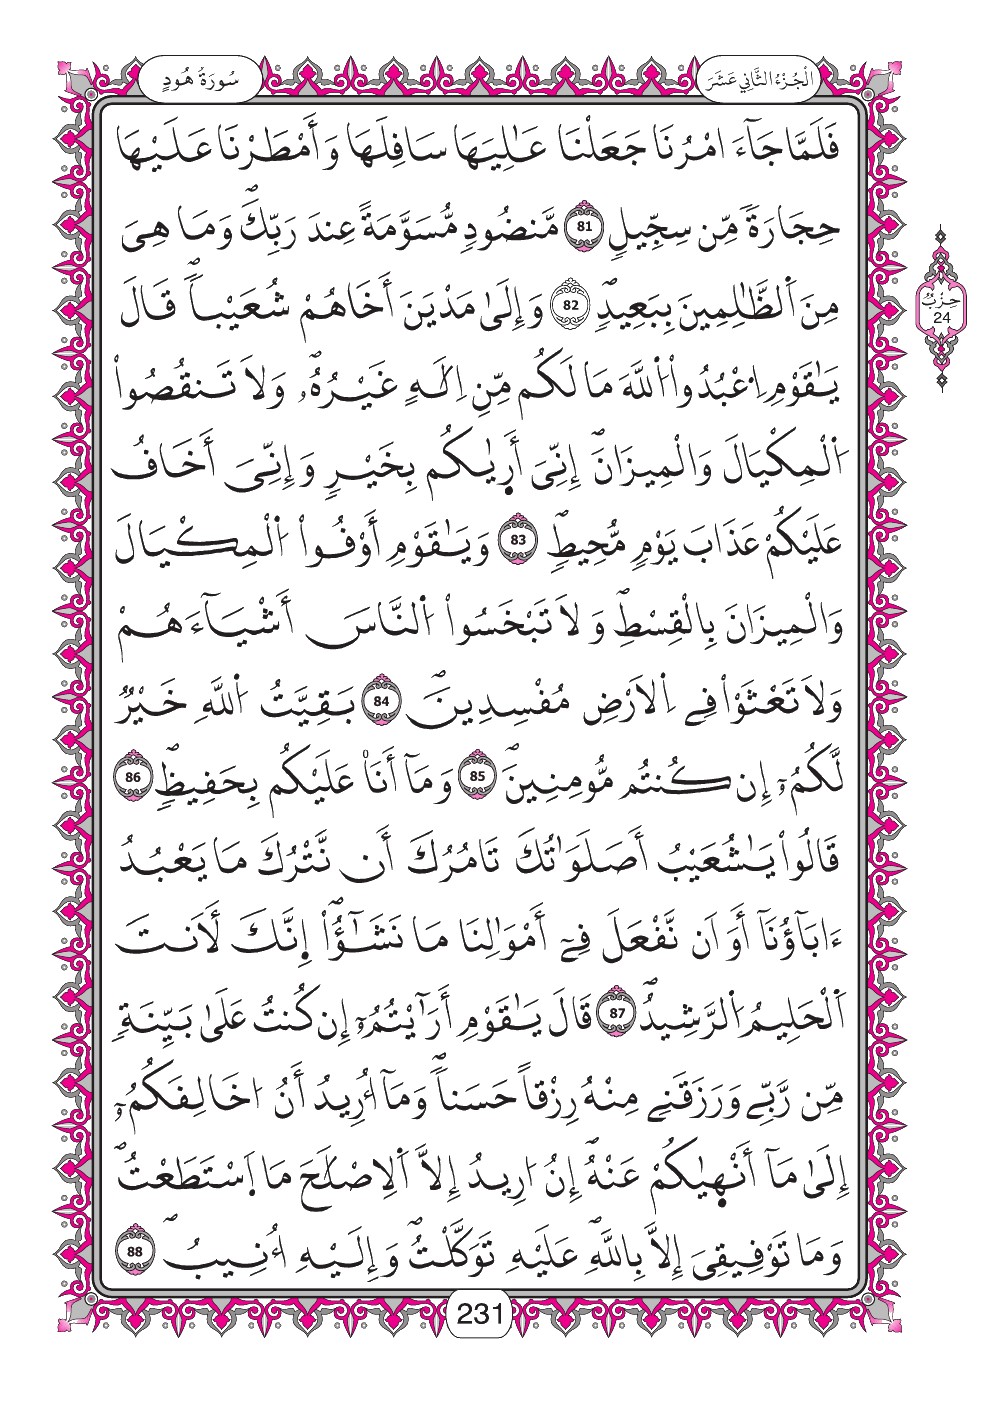 سُورَةُ هُودٍ
الْجُزْءُ الثَّانِي عَشَرَ
فَلَمَّا جَآءَ امْرُنَا جَعَلْنَا عَٰلِيَهَا سَافِلَهَا وَأَمْطَرْنَا عَلَيْهَا
حِجَارَةٗ مِّن سِجِّيلٖ 81 مَّنضُودٖ مُّسَوَّمَةً عِندَ رَبِّكَۖ وَمَا هِيَ
مِنَ اَ۬لظَّٰلِمِينَ بِبَعِيدٖۖ 82 وَإِلَىٰ مَدْيَنَ أَخَاهُمْ شُعَيْباٗۖ قَالَ
يَٰقَوْمِ اِ۟عْبُدُواْ اُ۬للَّهَ مَا لَكُم مِّنِ اِلَٰهٍ غَيْرُهُۥۖ وَلَا تَنقُصُواْ
اُ۬لْمِكْيَالَ وَالْمِيزَانَۖ إِنِّيَ أَر۪يٰكُم بِخَيْرٖ وَإِنِّيَ أَخَافُ
عَلَيْكُمْ عَذَابَ يَوْمٖ مُّحِيطٖۖ 83 وَيَٰقَوْمِ أَوْفُواْ اُ۬لْمِكْيَالَ
وَالْمِيزَانَ بِالْقِسْطِۖ وَلَا تَبْخَسُواْ اُ۬لنَّاسَ أَشْيَآءَهُمْ
وَلَا تَعْثَوْاْ فِے اِ۬لَارْضِ مُفْسِدِينَۖ 84 بَقِيَّتُ اُ۬للَّهِ خَيْرٞ
لَّكُمُۥٓ إِن كُنتُم مُّومِنِينَۖ 85 وَمَآ أَنَا۠ عَلَيْكُم بِحَفِيظٖۖ 86
قَالُواْ يَٰشُعَيْبُ أَصَلَوَٰتُكَ تَامُرُكَ أَن نَّتْرُكَ مَا يَعْبُدُ
ءَابَآؤُنَآ أَوَ اَن نَّفْعَلَ فِےٓ أَمْوَٰلِنَا مَا نَشَٰٓؤُاْۖ اِنَّكَ لَأَنتَ
اَ۬لْحَلِيمُ اُ۬لرَّشِيدُۖ 87 قَالَ يَٰقَوْمِ أَرَٰٓيْتُمُۥٓ إِن كُنتُ عَلَىٰ بَيِّنَةٖ
مِّن رَّبِّے وَرَزَقَنِے مِنْهُ رِزْقاً حَسَناٗۖ وَمَآ أُرِيدُ أَنُ اخَالِفَكُمُۥٓ
إِلَىٰ مَآ أَنْه۪يٰكُمْ عَنْهُۖ إِنُ ارِيدُ إِلَّا اَ۬لِاصْلَٰحَ مَا اَ۪سْتَطَعْتُۖ
وَمَا تَوْفِيقِيَ إِلَّا بِاللَّهِۖ عَلَيْهِ تَوَكَّلْتُۖ وَإِلَيْهِ أُنِيبُۖ 88
حِزْبُ
24
231